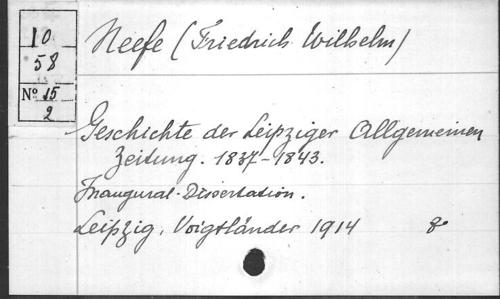 10
58
Nº 15
2
Neefe (Friedrich Wilhelm)
Geschichte der Leipziger Allgemeinen
Zeitung. 1837-1843.
Inaugural-Dissertation.
Leipzig, Voigtländer 1914 8º